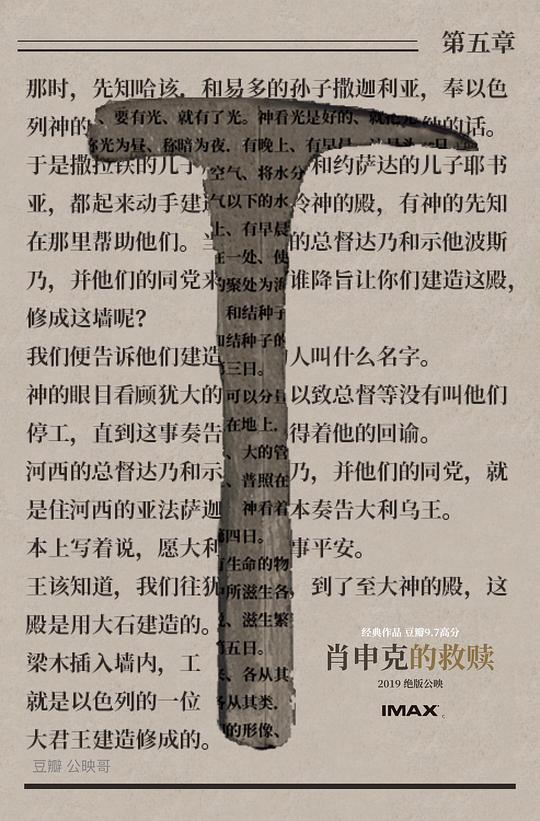 第五章
那时，先知哈该，和易多的孙子撒迦利亚，奉以色
列神的、要有光、就有了光。神看光是好的、就把光的话。
光为昼、称暗为夜．有晚上、有早晨
于是撒拉铁的儿子空气、将水分和约萨达的儿子耶书
亚，都起来动手建造气以下的水冷神的殿，有神的先知
在那里帮助他们。当上、有早晨的总督达乃和示他波斯
在一处、使
乃，并他们的同党来的聚处为海谁降旨让你们建造这殿，
修成这墙呢？和结种子
和结种子的
我们便告诉他们建造三日。人叫什么名字。
神的眼目看顾犹大的可以分以致总督等没有叫他们
停工，直到这事奏告在地上．得着他的回谕。
、大的管
河西的总督达乃和示、普照在乃，并他们的同党，就
是住河西的亚法萨迦神看着本奏告大利乌王。
本上写着说，愿大利四日。事平安。
有生命的物
王该知道，我们往犹所滋生各，到了至大神的殿，这
殿是用大石建造的。、滋生繁
五日。
梁木插入墙内，工、各从其
就是以色列的一位各从其类．
大君王建造修成的。的形像、
经典作品 豆瓣9.7高分
肖申克的救赎
2019 绝版公映
IMAX
豆瓣 公映哥